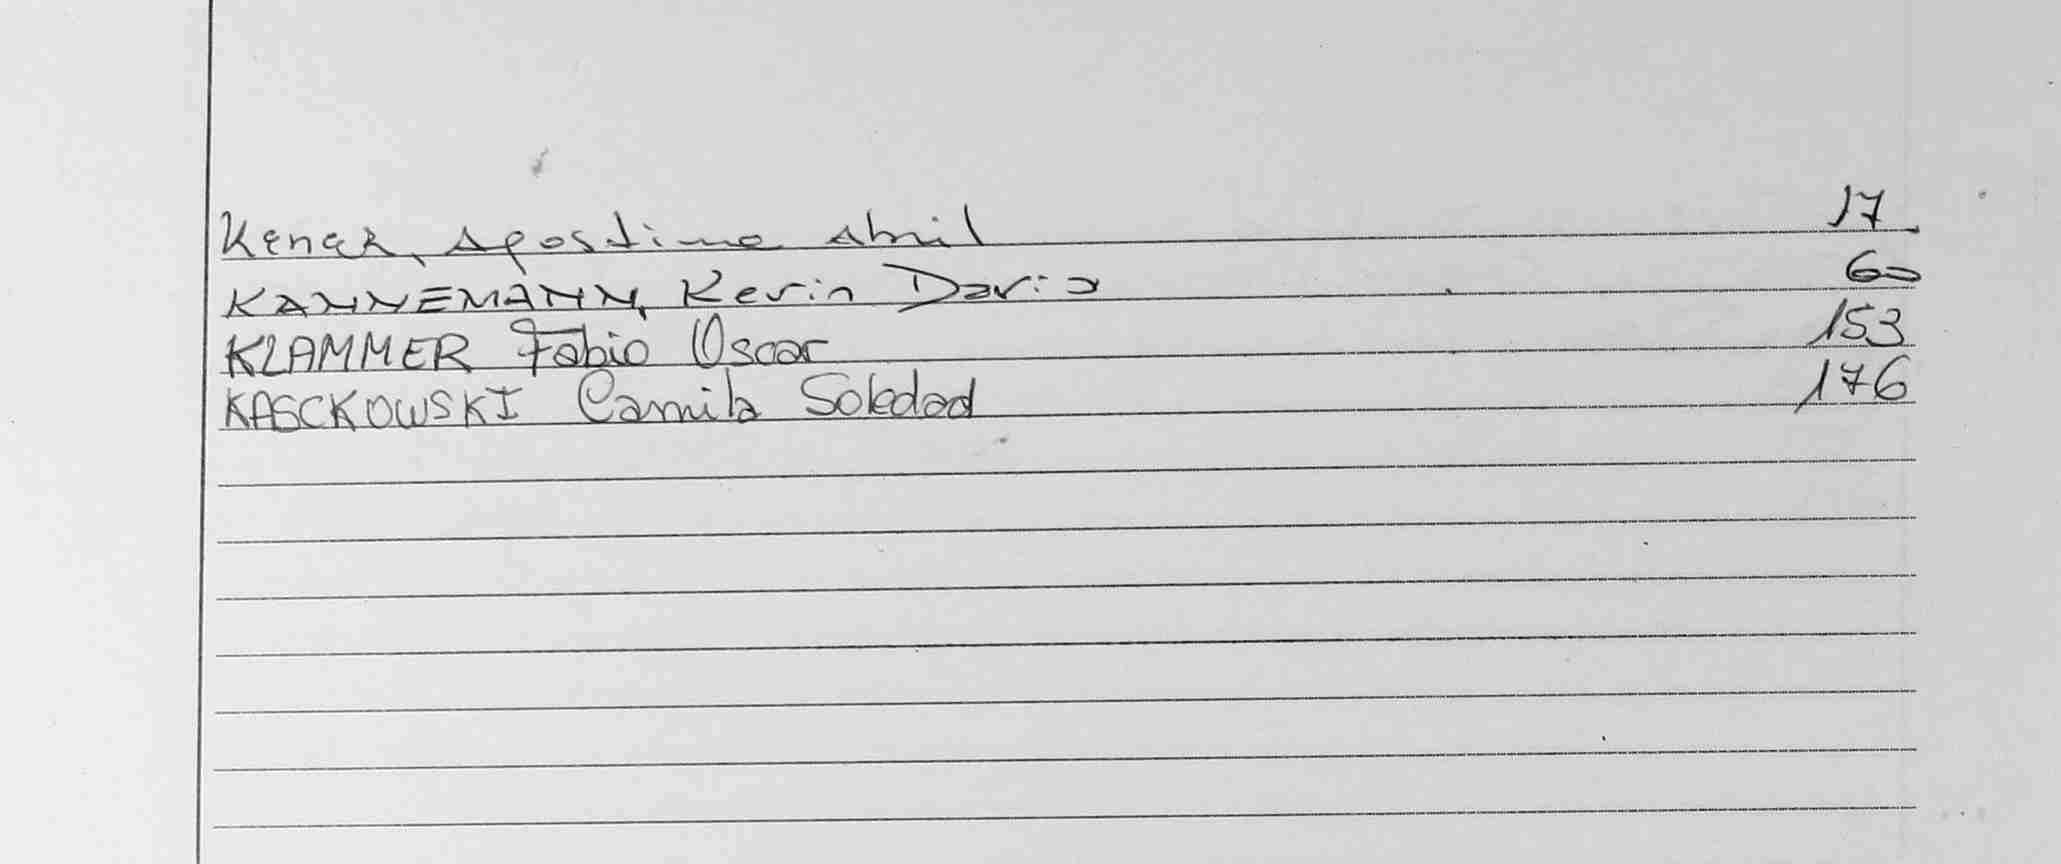 Kener, Agostina Abril 17
KANNEMANN, Kevin Dario 60
KLAMMER Fabio Oscar 153
KASCKOWSKI Camila Soledad 176